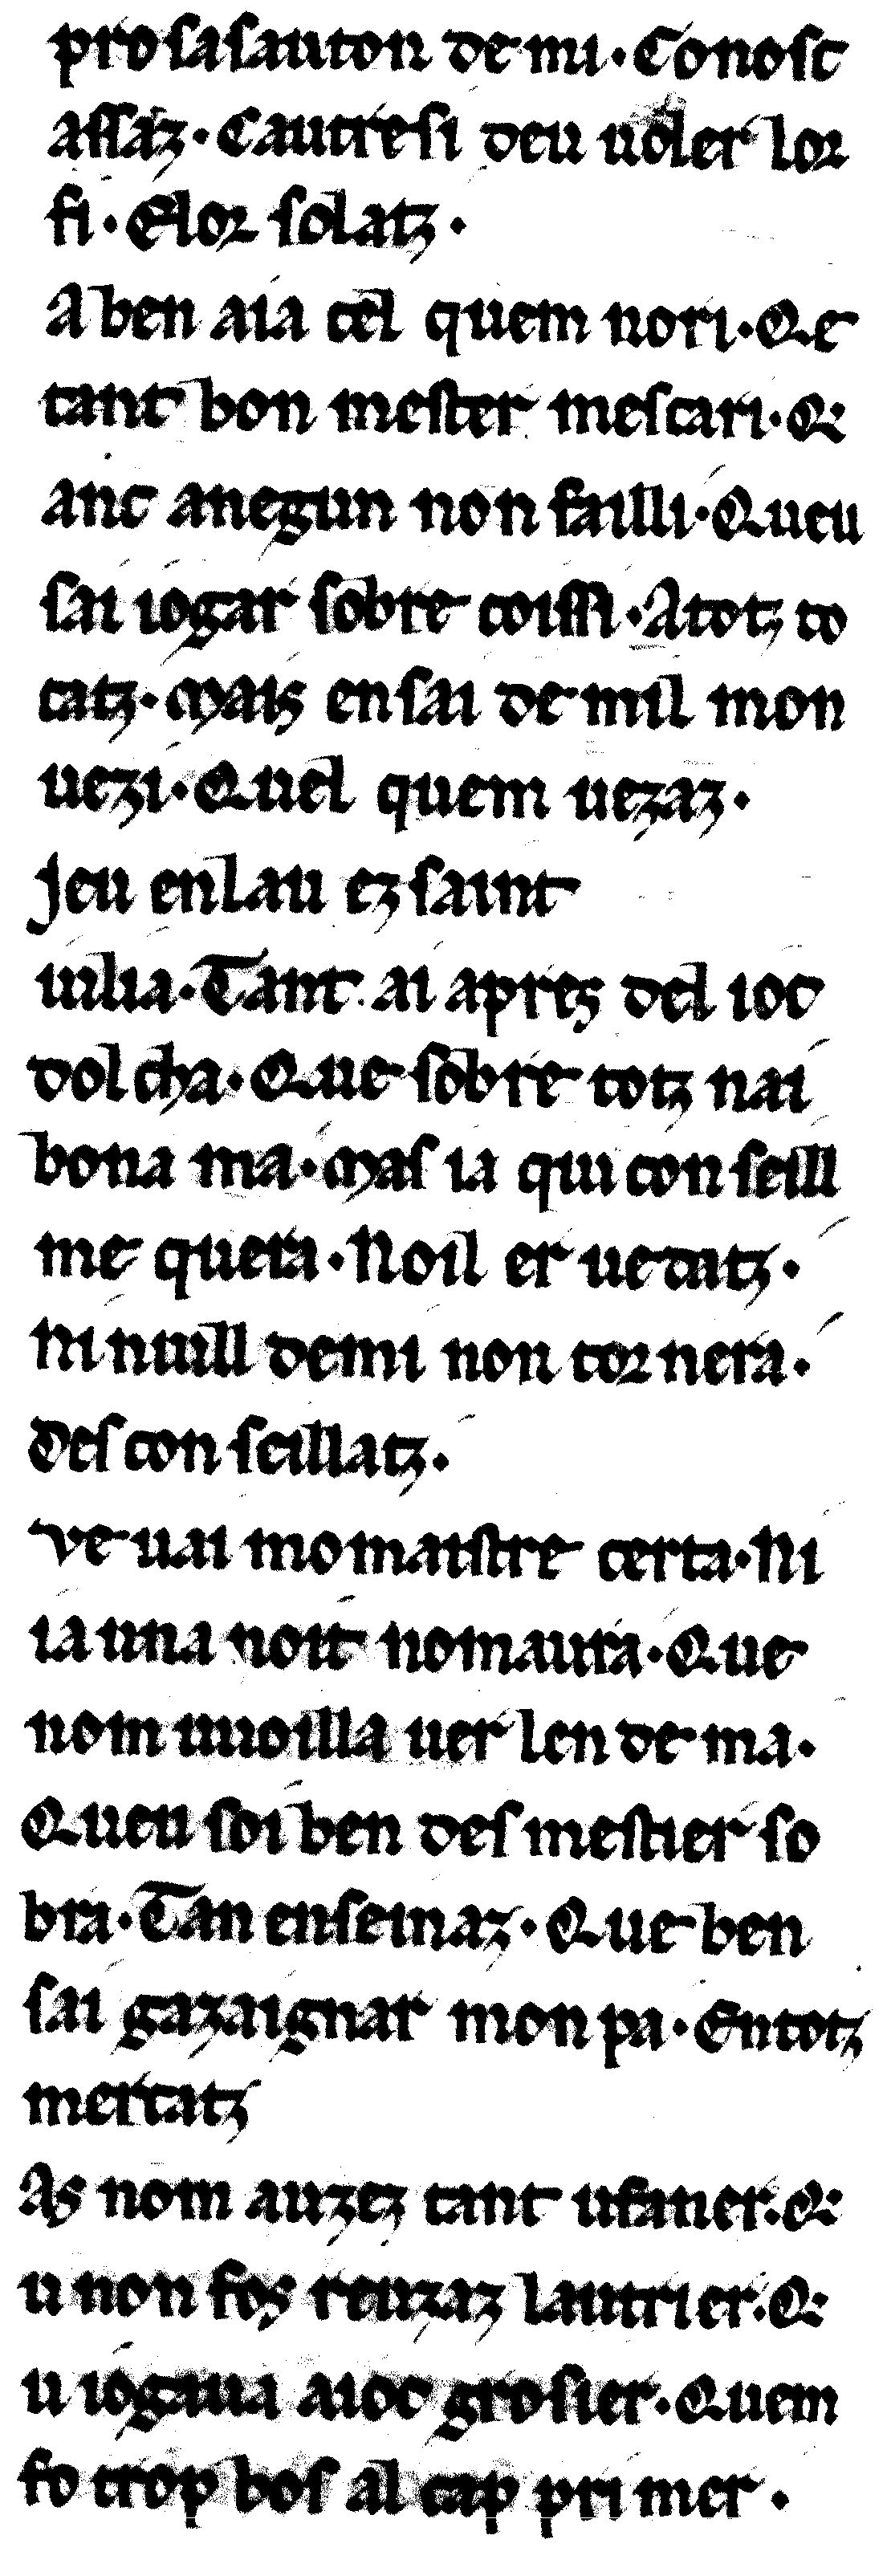 pro sasauton de mi · Conosc
assaz · Cautresi deu uoler lor
fi · Elor solatz ·
A ben aia cel quem nori · Qe
tant bon mester mescari · Qe
anc anegun non failli · Queu
sai iogar sobre coissi · A totz to
catz · Mais en sai de mil mon
uezi · Quel quem uezaz ·
Jeu en lau ez saint
iulia · Tant ai apres del ioc
dolcha · Que sobre totz nai
bona ma · Mas ia qui conseill
me quera · Noil er uedatz ·
Ni nuill de mi non tornera ·
Desconseillatz ·
Ve uai mo maistre certa · Ni
ia una noit nomaura · Que
nom uuoilla uer len de ma ·
Queu soi ben des mestier so
bra · Tan enseinaz · Que ben
sai gazaignar mon pa · En totz
mercatz
As nom auzez tant ufaner · Qe
u non fos reuzaz lautrier · Qe
u iogaua aioc grosier · Quem
fo trop bos al cap primer ·